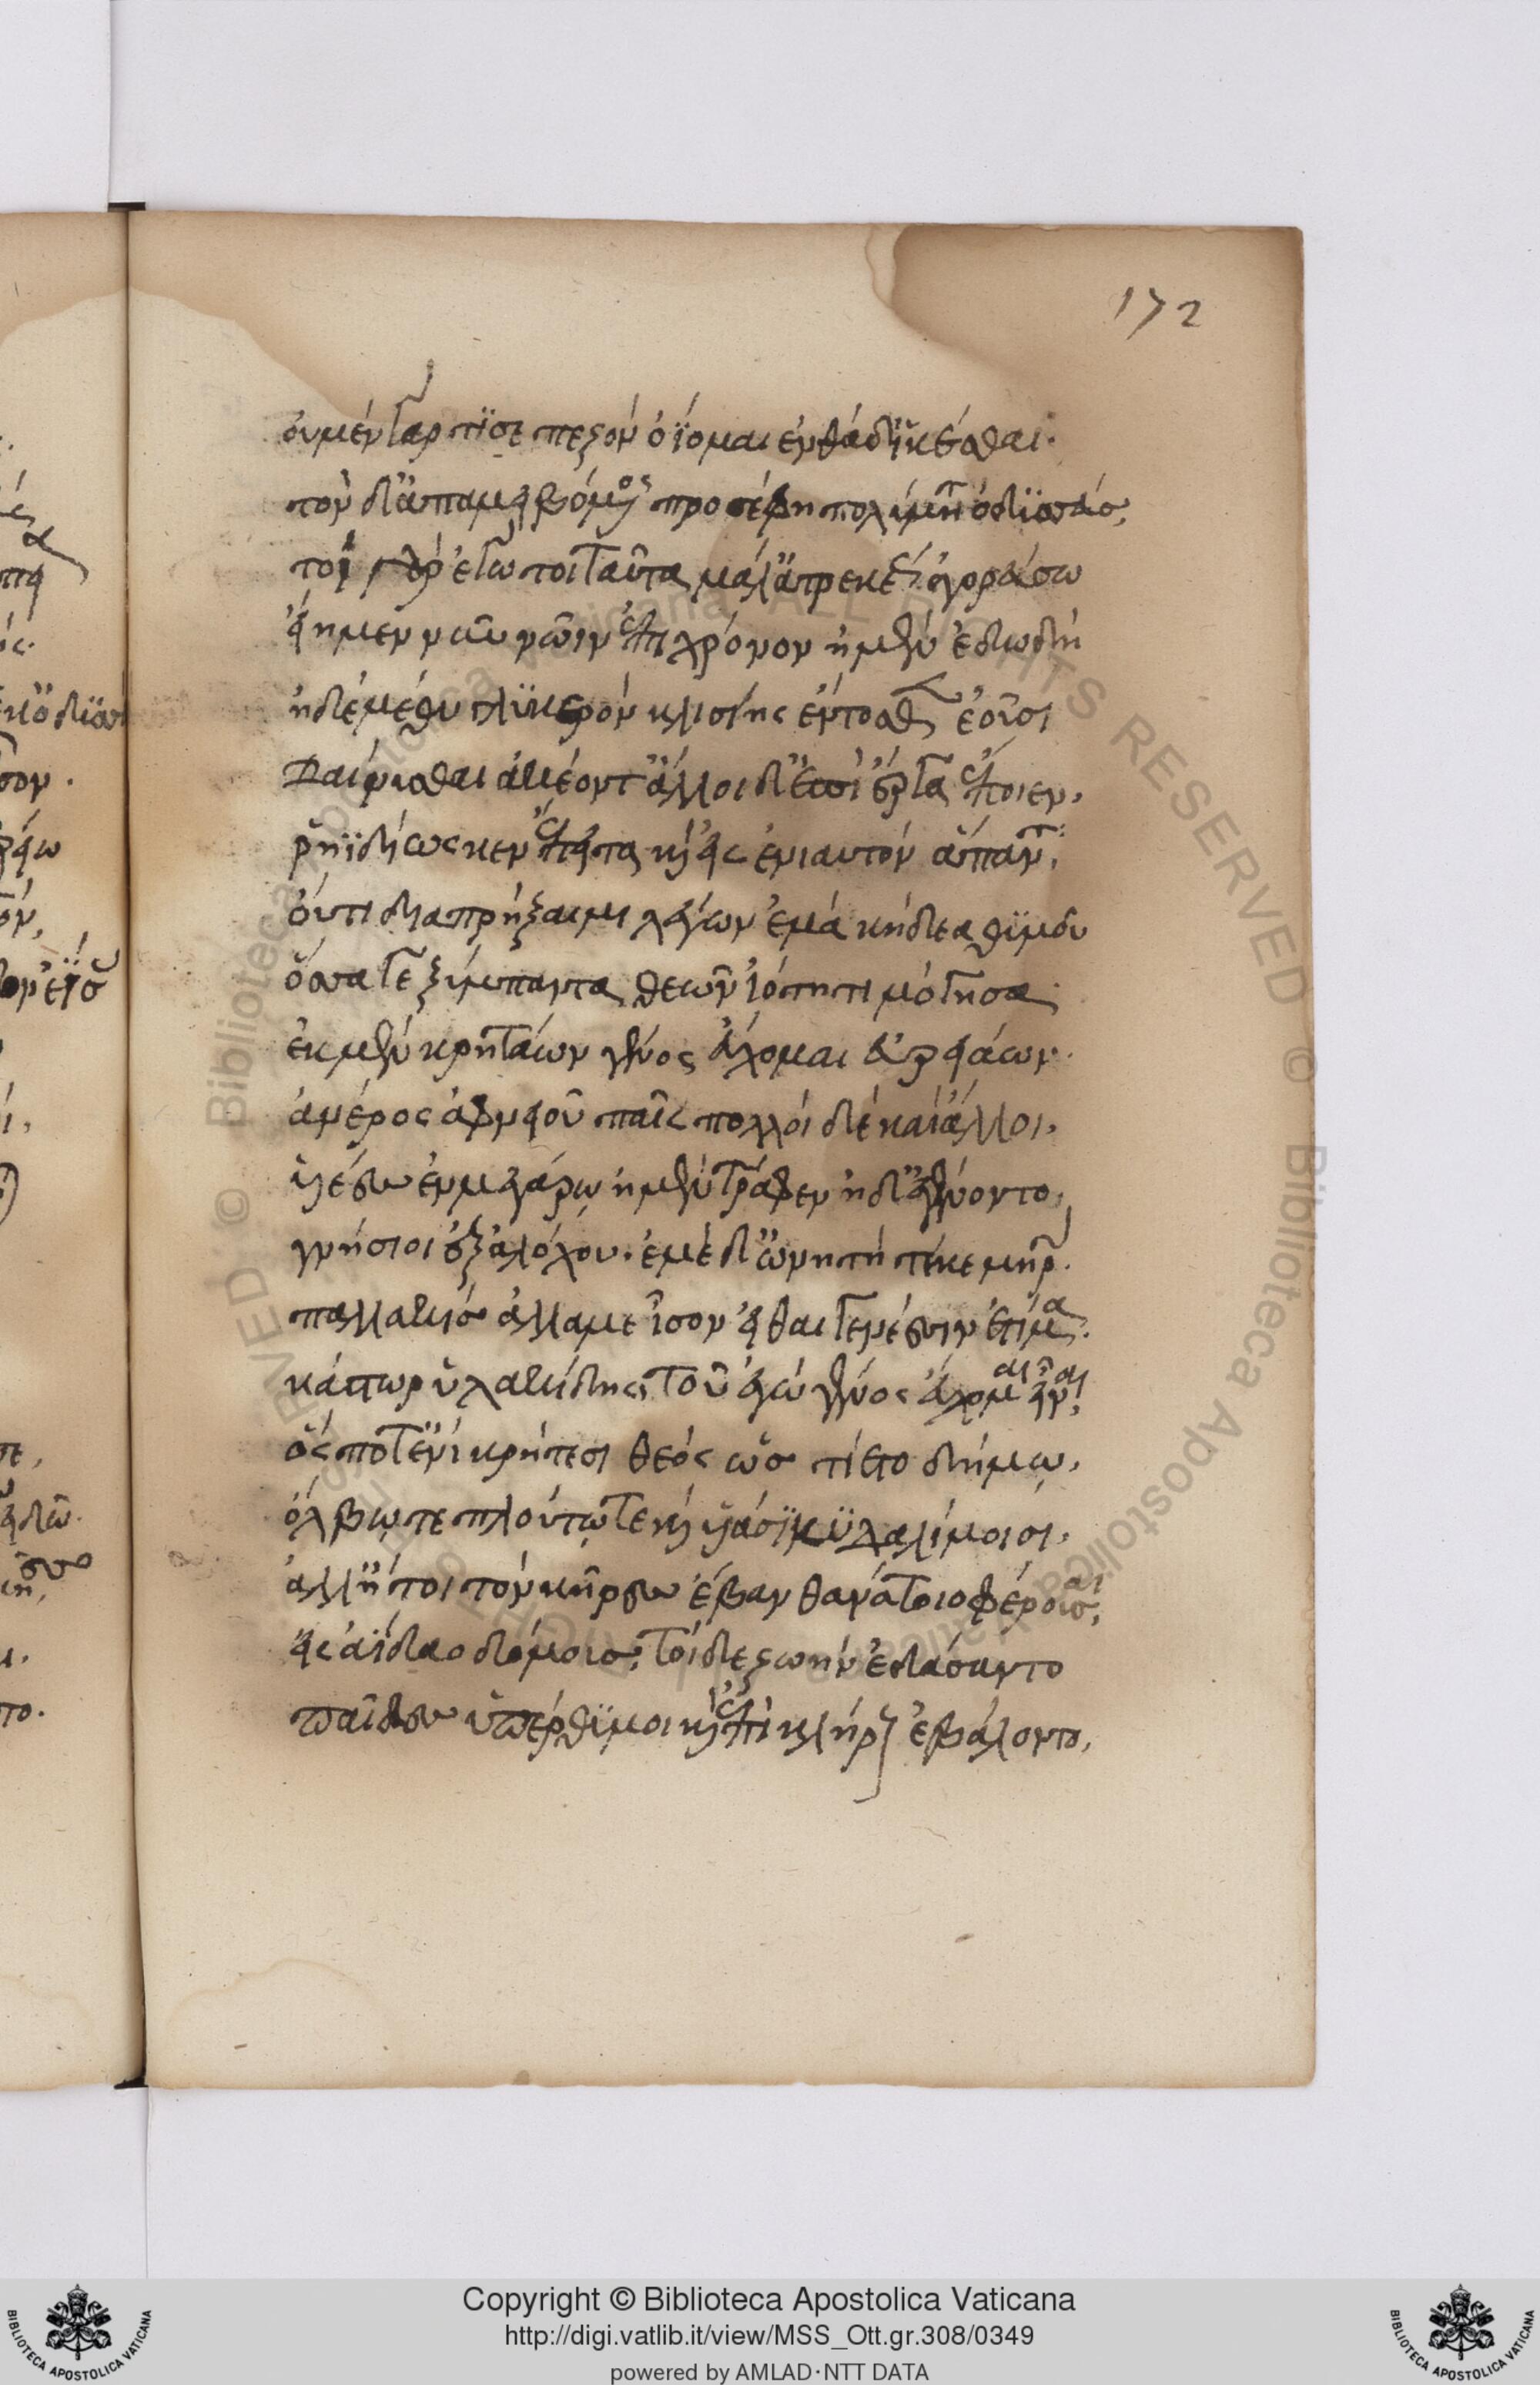 172
οὐ μὲν γάρ τί σε πεζὸν ὀΐομαι ἐνθάδ' ἱκέσθαι.
τὸν δ' ἀπαμειβόμενος προσέφη πολύμητις ὀδυσσεύς,
τοὶ γὰρ ἐγώ τοι ταῦτα μάλ' ἀτρεκέως ἀγορεύσω
εἴη μὲν νῦν νῶϊν ἐπὶ χρόνον ἠμὲν ἐδωδὴ
ἠδὲ μέθυ γλυκερὸν κλισίης ἔντοσθεν ἐοῦσι
δαίνυσθαι ἀκέοντ' ἄλλοι δ' ἐπὶ ἔργα ἕποιεν,
ῥηϊδίως κεν ἔπειτα καὶ εἰς ἐνιαυτὸν ἅπαντα,
οὔτι διαπρήξαιμι λέγων ἐμὰ κήδεα θυμοῦ
ὅσσα γε ξύμπαντα θεῶν ἰότητι μόγησα.
ἐκ μὲν κρητάων γένος εὔχομαι εὐρειάων.
ἀνέρος ἀφνειοῦ παῖς πολλοὶ δὲ καὶ ἄλλοι,
υἱέες ἐν μεγάρω ἠμὲν τράφεν ἠδ' ἐγένοντο,
γνήσιοι ἐξ ἀλόχου. ἐμὲ δ' ὠνητὴ τέκε μήτηρ.
παλλακὶς ἀλλά με ἶσον ἰθαιγενέεσσιν ἐτίμα.
κάστωρ ὑλακίδης, τοῦ ἐγὼ γένος εὔχομαι εἶναι,
ὅς ποτ' ἐνὶ κρήτεσι θεὸς ὣς τίετο δήμω,
ὄλβω τε πλούτω τε καὶ υἱάσι κυδαλίμοισι,
ἀλλ' ἤτοι τὸν κῆρες ἔβαν θανάτοιο φέρουσαι,
εἰς ἀΐδαο δόμους, τοὶ δὲ ζωὴν ἐδάσαντο
παῖδες ὑπέρθυμοι καὶ ἐπὶ κλήρους ἐβάλοντο,
Copyright © Biblioteca Apostolica Vaticana
http://digi.vatlib.it/view/MSS_Ott.gr.308/0349
powered by AMLAD·NTT DATA